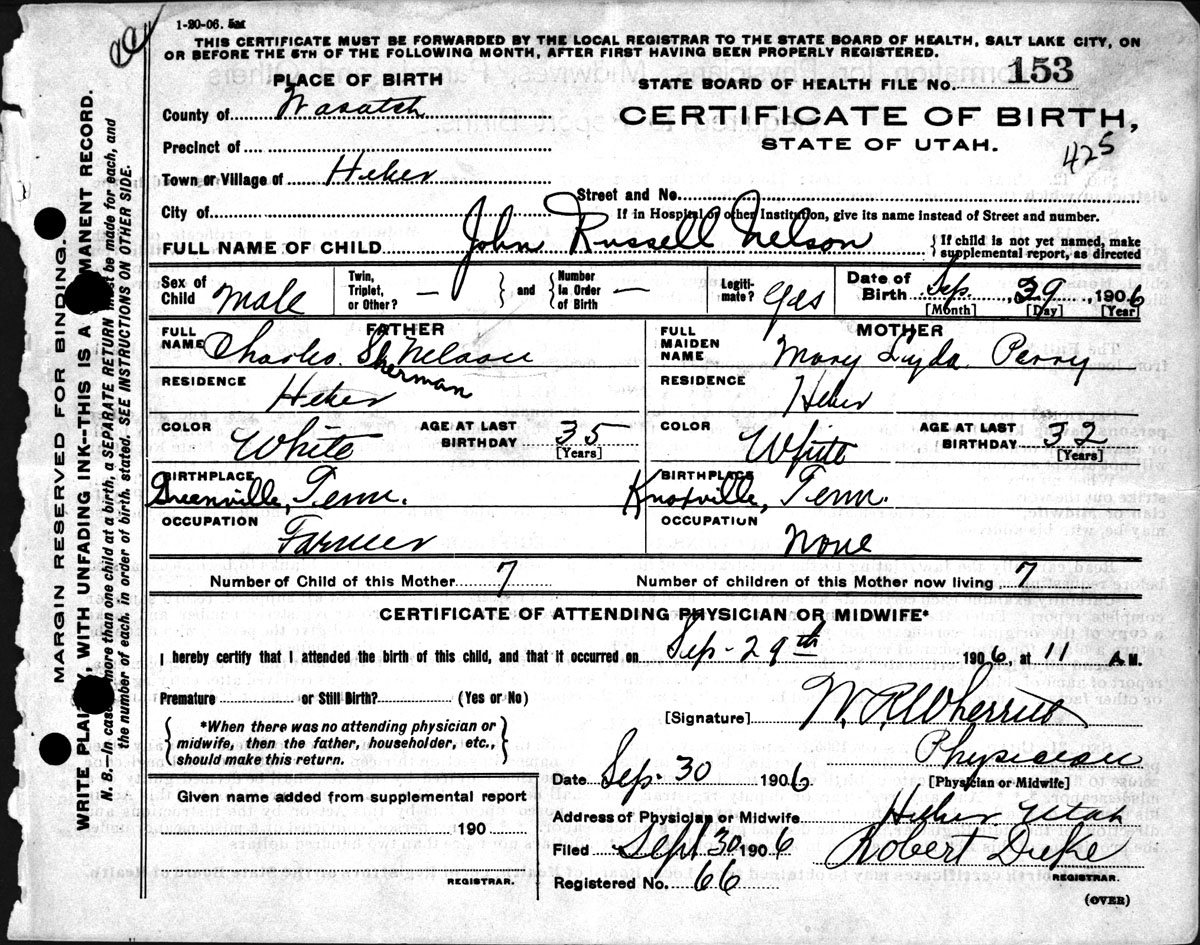 1-20-06. 5M
THIS CERTIFICATE MUST BE FORWARDED BY THE LOCAL REGISTRAR TO THE STATE BOARD OF HEALTH, SALT LAKE CITY, ON
OR BEFORE THE 5TH OF THE FOLLOWING MONTH, AFTER FIRST HAVING BEEN PROPERLY REGISTERED.
PLACE OF BIRTH
STATE BOARD OF HEALTH FILE No. 153
County of Wasatch
CERTIFICATE OF BIRTH,
STATE OF UTAH.
425
Precinct of
Town or Village of Heber
Street and No.
City of
If in Hospital or other Institution, give its name instead of Street and number.
FULL NAME OF CHILD John Russell Nelson { If child is not yet named, make
supplemental report, as directed
Sex of Child Male Twin, Triplet, or Other? — } and { Number In Order of Birth — Legiti-mate? Yes Date of Birth Sep. 29, 1906
[Month] [Day] [Year]
FATHER MOTHER
FULL NAME Charles Sherman Nelson FULL MAIDEN NAME Mary Lyda Perry
RESIDENCE Heber RESIDENCE Heber
COLOR White AGE AT LAST BIRTHDAY 35 [Years] COLOR White AGE AT LAST BIRTHDAY 32 [Years]
BIRTHPLACE Greenville, Tenn. BIRTHPLACE Knoxville, Tenn.
OCCUPATION Farmer OCCUPATION None
Number of Child of this Mother 7 Number of children of this Mother now living 7
CERTIFICATE OF ATTENDING PHYSICIAN OR MIDWIFE*
I hereby certify that I attended the birth of this child, and that it occurred on Sep- 29th 1906 at 11 A M.
Premature or Still Birth? (Yes or No)
[Signature] W. R. Wherritt
{ *When there was no attending physician or
midwife, then the father, householder, etc.,
should make this return. }
Physician
[Physician or Midwife]
Date Sep. 30 1906
Given name added from supplemental report
190
REGISTRAR.
Address of Physician or Midwife Heber Utah
Filed Sept 30 1906 Robert Duke
REGISTRAR.
Registered No. 66
(OVER)
MARGIN RESERVED FOR BINDING.
WRITE PLAINLY, WITH UNFADING INK--THIS IS A PERMANENT RECORD.
N. B.--In case more than one child at a birth, a SEPARATE RETURN must be made for each, and
the number of each, in order of birth, stated. SEE INSTRUCTIONS ON OTHER SIDE.